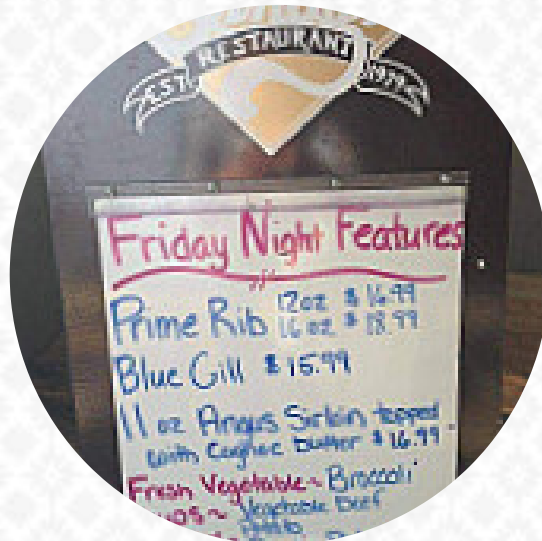 RESTAURANT
EST
Friday Night Features
Prime Rib 12oz $16.99
16oz $18.99
Blue Gill $15.99
11 oz Angus Sirloin topped
with Cognac butter $16.99
Fresh Vegetable ~ Broccoli
Vegetable Beef